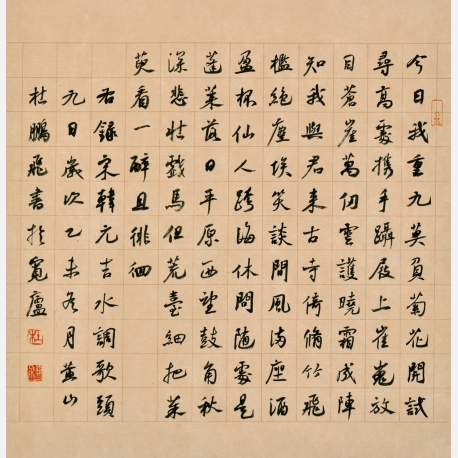 今日我重九莫負菊花開試
尋高處携手躡屐上崔嵬放
目蒼崖萬仞雲護曉霜成陣
知我與君來古寺倚脩竹飛
檻絕塵埃笑談間風滿座酒
盈杯仙人跨海休問隨處是
蓬萊落日平原西望鼓角秋
深悲壯戲馬但荒臺細把茱
萸看一醉且徘徊
右錄宋韓元吉水調歌頭
九日歲次乙未冬月燕山
杜鵬飛書於寬廬